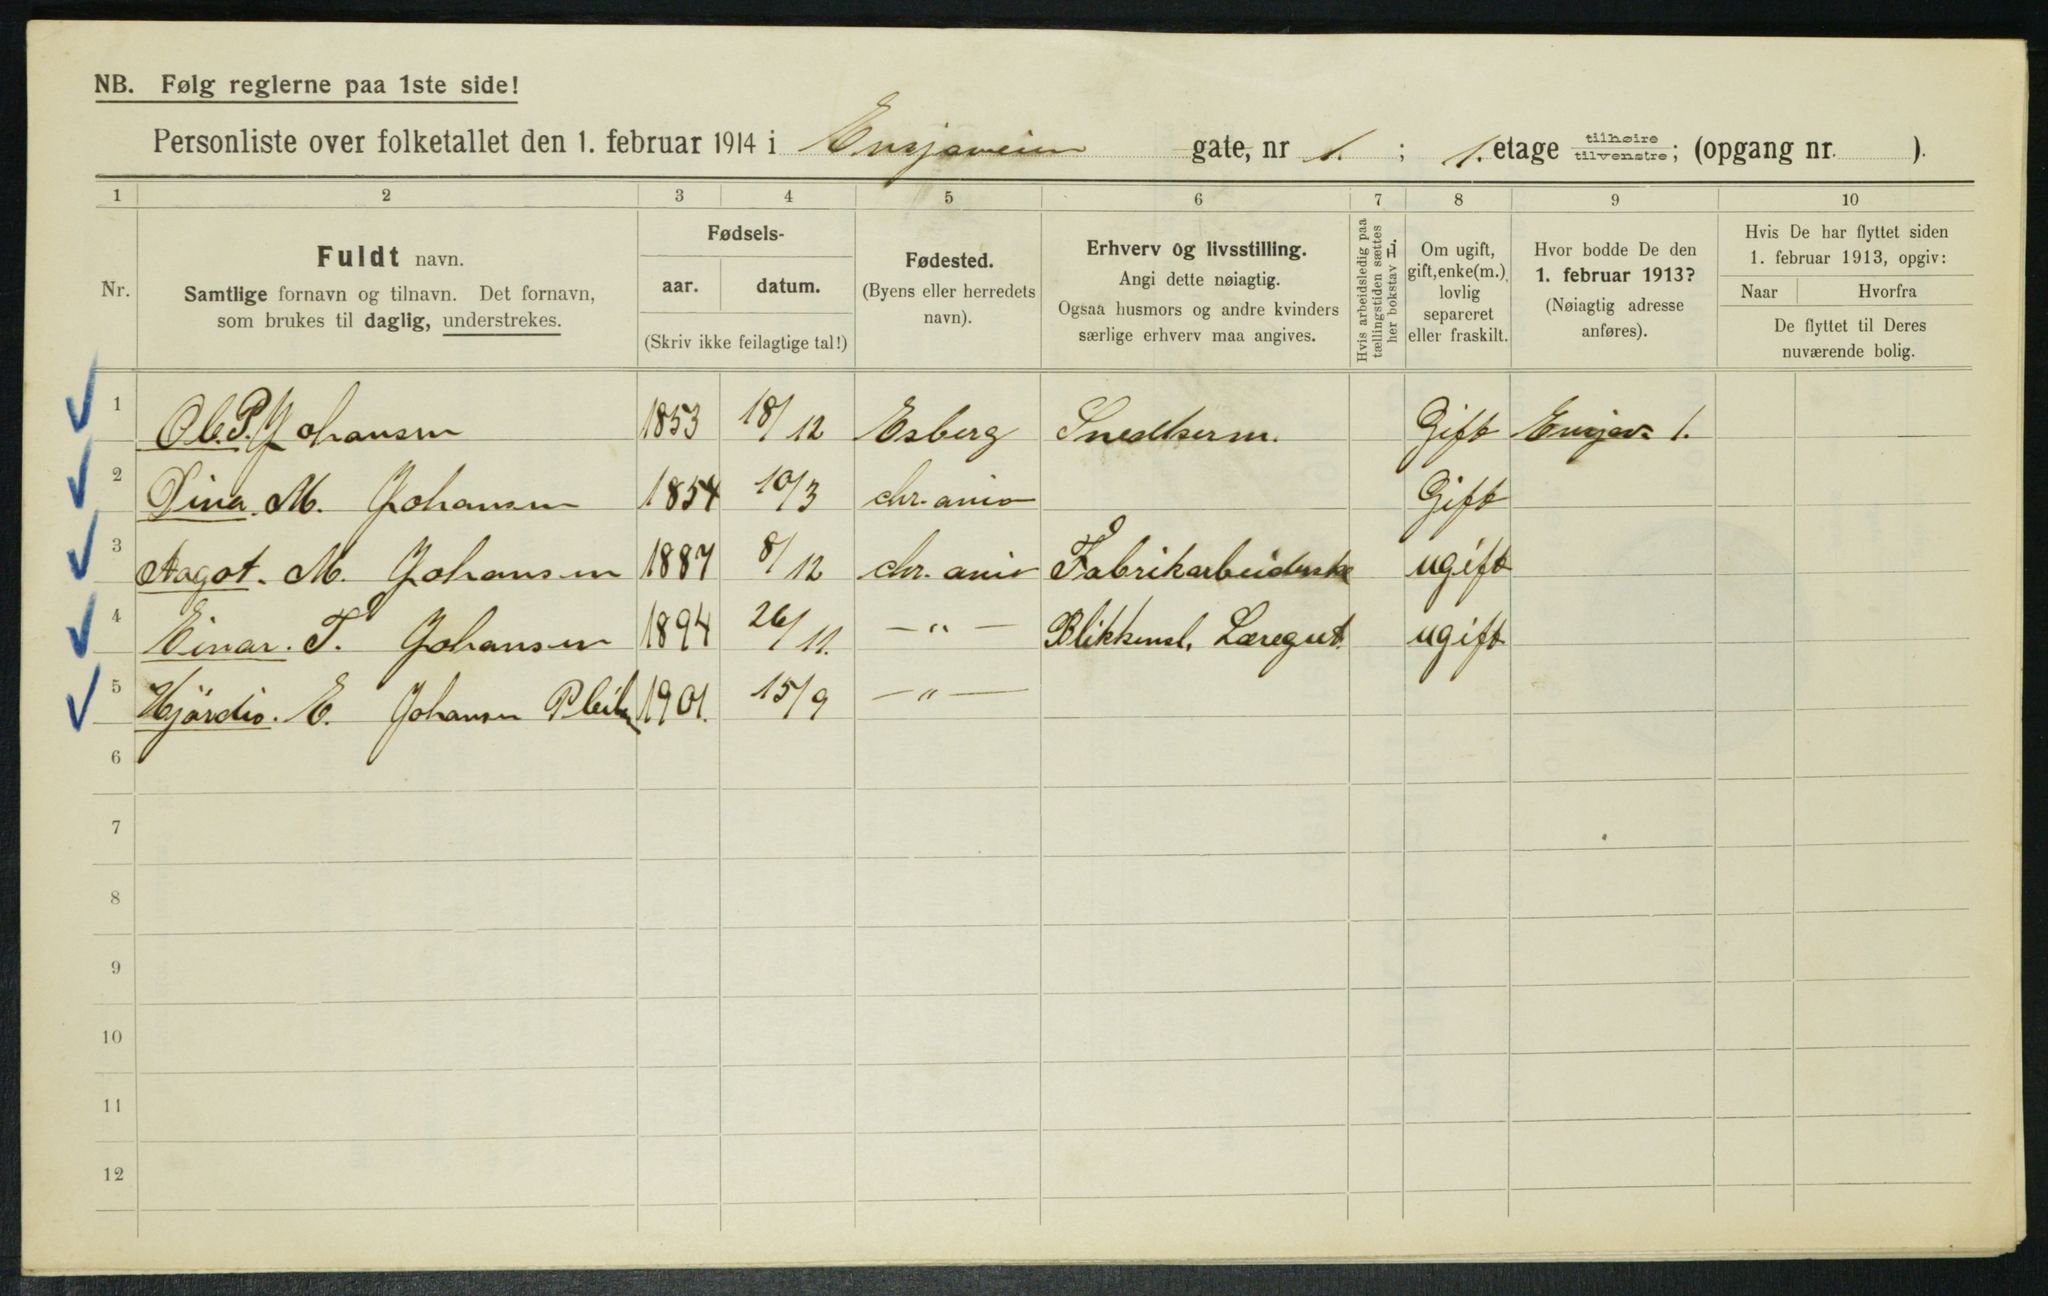 NB. Følg reglerne paa 1ste side!
Personliste over folketallet den 1. februar 1914 i Ensjøveien gate, nr 1. ; 1. etage tilhøire tilvenstre; (opgang nr. ).
1 2 3 4 5 6 7 8 9 10
Nr.
Fuldt navn.
Samtlige fornavn og tilnavn. Det fornavn,
som brukes til daglig, understrekes.
Fødsels-
aar. datum.
(Skriv ikke feilagtige tal!)
Fødested.
(Byens eller herredets
navn).
Erhverv og livsstilling.
Angi dette nøiagtig.
Ogsaa husmors og andre kvinders
særlige erhverv maa angives.
Hvis arbeidsledig paa
tællingstiden sættes
her bokstav L.
Om ugift,
gift, enke(m.),
lovlig
separeret
eller fraskilt.
Hvor bodde De den
1. februar 1913?
(Nøiagtig adresse
anføres).
Hvis De har flyttet siden
1. februar 1913, opgiv:
Naar Hvorfra
De flyttet til Deres
nuværende bolig.
1 Ole P. Johansen 1853 18/12 Esberg Snedkerm. Gift Ensjøv. 1.
2 Dina. M. Johansen 1854 10/3 chr.ania Gift
3 Aagot. M. Johansen 1887 8/12 chr.ania Fabrikarbeiderske ugift
4 Einar. T. Johansen 1894 26/11. —"— Blikkensl. Læregut. ugift
5 Hjørdis. E. Johansen 1901. 15/9 —"—
6
7
8
9
10
11
12